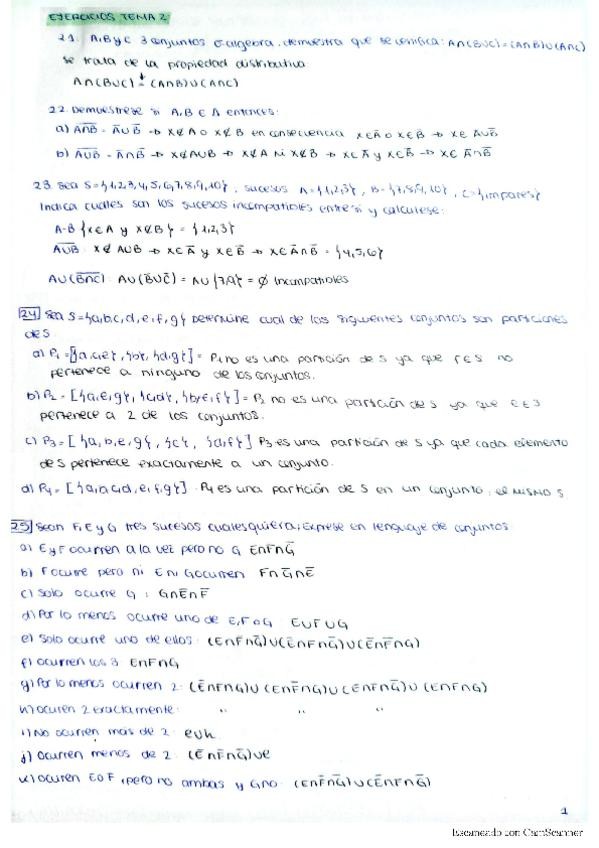 EJERCICIOS TEMA 2
2.1. A, B y C 3 conjuntos σ-algebra, demuestra que se verifica: A∩(B∪C)=(A∩B)∪(A∩C)
se trata de la propiedad distributiva
A∩(B∪C) = (A∩B)∪(A∩C)
2.2. Demuestrese si A,B ∈ A entonces:
a) A̅∩̅B̅ = A̅∪B̅ → x∉A o x∉B en consecuencia x∈A̅ o x∈B̅ → x∈ A̅∪B̅
b) A̅∪̅B̅ = A̅∩B̅ → x∉A∪B → x∉A ni x∉B → x∈A̅ y x∈B̅ → x∈ A̅∩B̅
2.3. Sea S={1,2,3,4,5,6,7,8,9,10}, sucesos A={1,2,3}, B={7,8,9,10}, C={impares}
Indica cuales son los sucesos incompatibles entre si y calculese:
A-B {x∈A y x∉B} = {1,2,3}
A̅∪̅B̅: x∉ A∪B → x∈A̅ y x∈B̅ → x∈A̅∩B̅ = {4,5,6}
A∪(B̅∩̅C̅): A∪(B̅∪C̅) = A∪{7,9} = ∅ Incompatibles
2.4 Sea S={a,b,c,d,e,f,g} Determine cual de los siguientes conjuntos son particiones
de S
a) P₁=[{a,c,e}, {b}, {d,g}] = P₁ no es una partición de S ya que f∈S no
pertenece a ninguno de los conjuntos.
b) P₂ = [{a,e,g}, {c,d}, {b,e,f}] = P₂ no es una partición de S ya que e∈S
pertenece a 2 de los conjuntos.
c) P₃ = [{a,b,e,g}, {c}, {d,f}] P₃ es una partición de S ya que cada elemento
de S pertenece exactamente a un conjunto.
d) P₄ = [{a,b,c,d,e,f,g}] P₄ es una partición de S en un conjunto, el mismo S
2.5 Sean F, E y G tres sucesos cualesquiera, exprese en lenguaje de conjuntos
a) E y F ocurren a la vez pero no G E∩F∩G̅
b) F ocurre pero ni E ni G ocurren F∩G̅∩E̅
c) Solo ocurre G : G∩E̅∩F̅
d) Por lo menos ocurre uno de E, F o G E∪F∪G
e) Solo ocurre uno de ellos: (E∩F̅∩G̅)∪(E̅∩F∩G̅)∪(E̅∩F̅∩G)
f) Ocurren los 3 E∩F∩G
g) Por lo menos ocurren 2: (E̅∩F∩G)∪(E∩F̅∩G)∪(E∩F∩G̅)∪(E∩F∩G)
h) Ocurren 2 exactamente: " " "
i) No ocurren más de 2: e∪h.
j) Ocurren menos de 2: (E̅∩F̅∩G̅)∪e
k) Ocurren E o F, pero no ambas y G no: (E∩F̅∩G̅)∪(E̅∩F∩G̅)
1
Escaneado con CamScanner